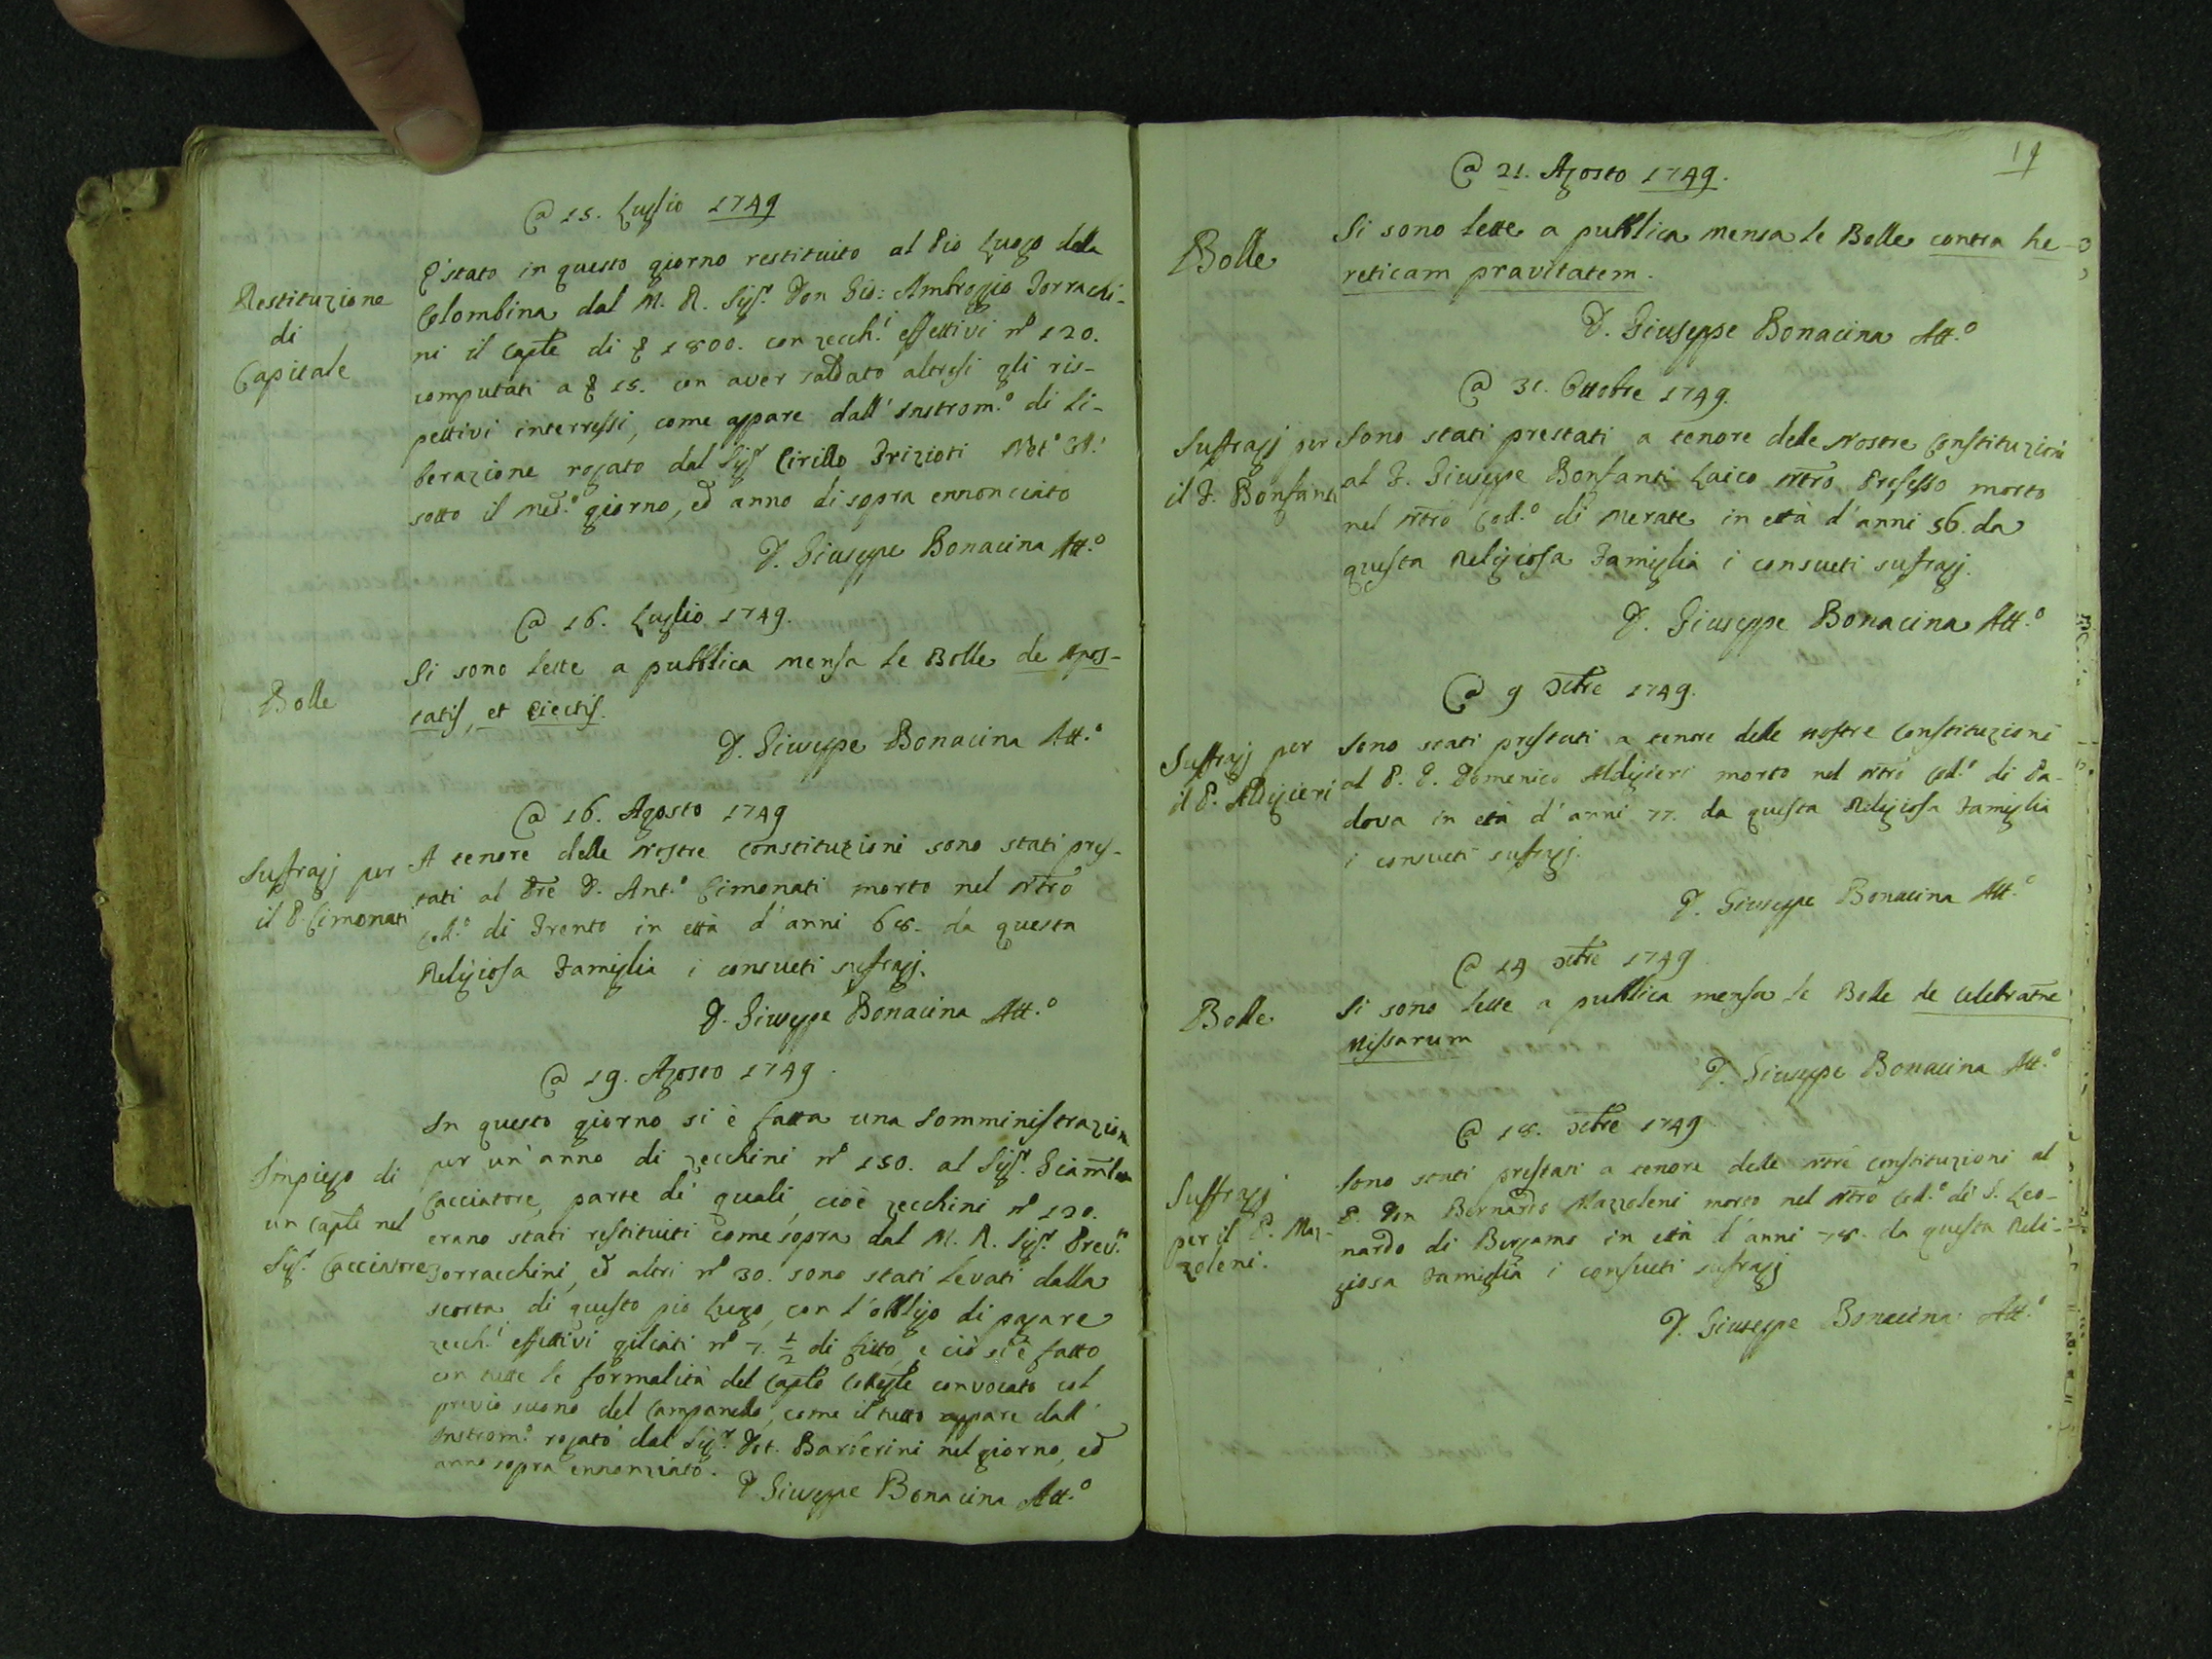 @ 15. Luglio 1749
Restituzione
di
Capitale
È stato in questo giorno restituito al Pio Luogo della
Colombina dal M. R. Sig.r Don Gio: Ambroggio Torrachi-
ni il Caple di £ 1800. con zecch.i effettivi n.o 120.
computati a £ 15. con aver saldato altresi gli ris-
pettivi interressi, come appare dall' Instrom.o di Li-
berazione rogato dal Sig.r Cirillo Frizioti Not.o
sotto il med.o giorno, ed anno di sopra ennonciato
D. Giuseppe Bonacina Att.o
@ 16. Luglio 1749.
Bolle
Si sono lette a pubblica mensa le Bolle de Apos-
tatis, et Eiectis.
D. Giuseppe Bonacina Att.o
@ 16. Agosto 1749
Suffragj per
il P. Cimonati
A tenore delle nostre constituzioni sono stati pres-
tati al Pre D. Ant.o Cimonati morto nel Ntro
Col.o di Trento in età d'anni 68. da questa
Religiosa Famiglia i consueti sufragj.
D. Giuseppe Bonacina Att.o
@ 19. Agosto 1749.
Impiego di
un Caple nel
Sig.r Cacciatore
In questo giorno si è fatta una Somministrazion
per un'anno di zecchini n.o 150. al Sig.r
Cacciatore, parte di quali, cioè zecchini n.o 120.
erano stati restituiti come sopra dal M. R. Sig.r Prev.o
Torracchini, ed altri n.o 30. sono stati levati dalla
scorta di questo pio Luogo, con l'obbligo di pagare
zecch.i effettivi gigliati n.o 7. 1/2 di fitto, e ciò si è fatto
con tutte le formalità del Caplo Collegle convocato col
previo suono del Campanello, come il tutto appare dall'
Instrom.o rogato dal Sig.r Dot. Barberini nel giorno, ed
anno sopra ennonziato.
D. Giuseppe Bonacina Att.o
19
@ 21. Agosto 1749.
Bolle
Si sono lette a publica mensa le Bolle contra he-
reticam pravitatem.
D. Giuseppe Bonacina Att.o
@ 31. Ottobre 1749.
Suffragj per
il F. Bonfanti
Sono stati prestati a tenore delle nostre Constituzioni
al F. Giuseppe Bonfanti Laico ntro Professo morto
nel ntro Col.o di Merate in età d'anni 56. da
questa Religiosa Famiglia i consueti sufragj.
D. Giuseppe Bonacina Att.o
@ 9 Xbre 1749.
Suffragj per
il P. Aldigieri
Sono stati prestati a tenore delle nostre Constituzioni
al P. D. Domenico Aldigieri morto nel ntro Col.o di Pa-
dova in età d'anni 77. da questa Religiosa Famiglia
i consueti sufragj.
D. Giuseppe Bonacina Att.o
@ 14 Xbre 1749
Bolle
Si sono lette a publica mensa le Bolle de Celebratne
Missarum
D. Giuseppe Bonacina Att.o
@ 18. Xbre 1749.
Suffragj
per il P. Maz-
zoleni.
Sono stati prestati a tenore delle ntre constituzioni al
P. Don Bernardo Mazzoleni morto nel ntro Col.o di S. Leo-
nardo di Bergamo in età d'anni 78. da questa Reli-
giosa Famiglia i consueti sufragj
D. Giuseppe Bonacina Att.o